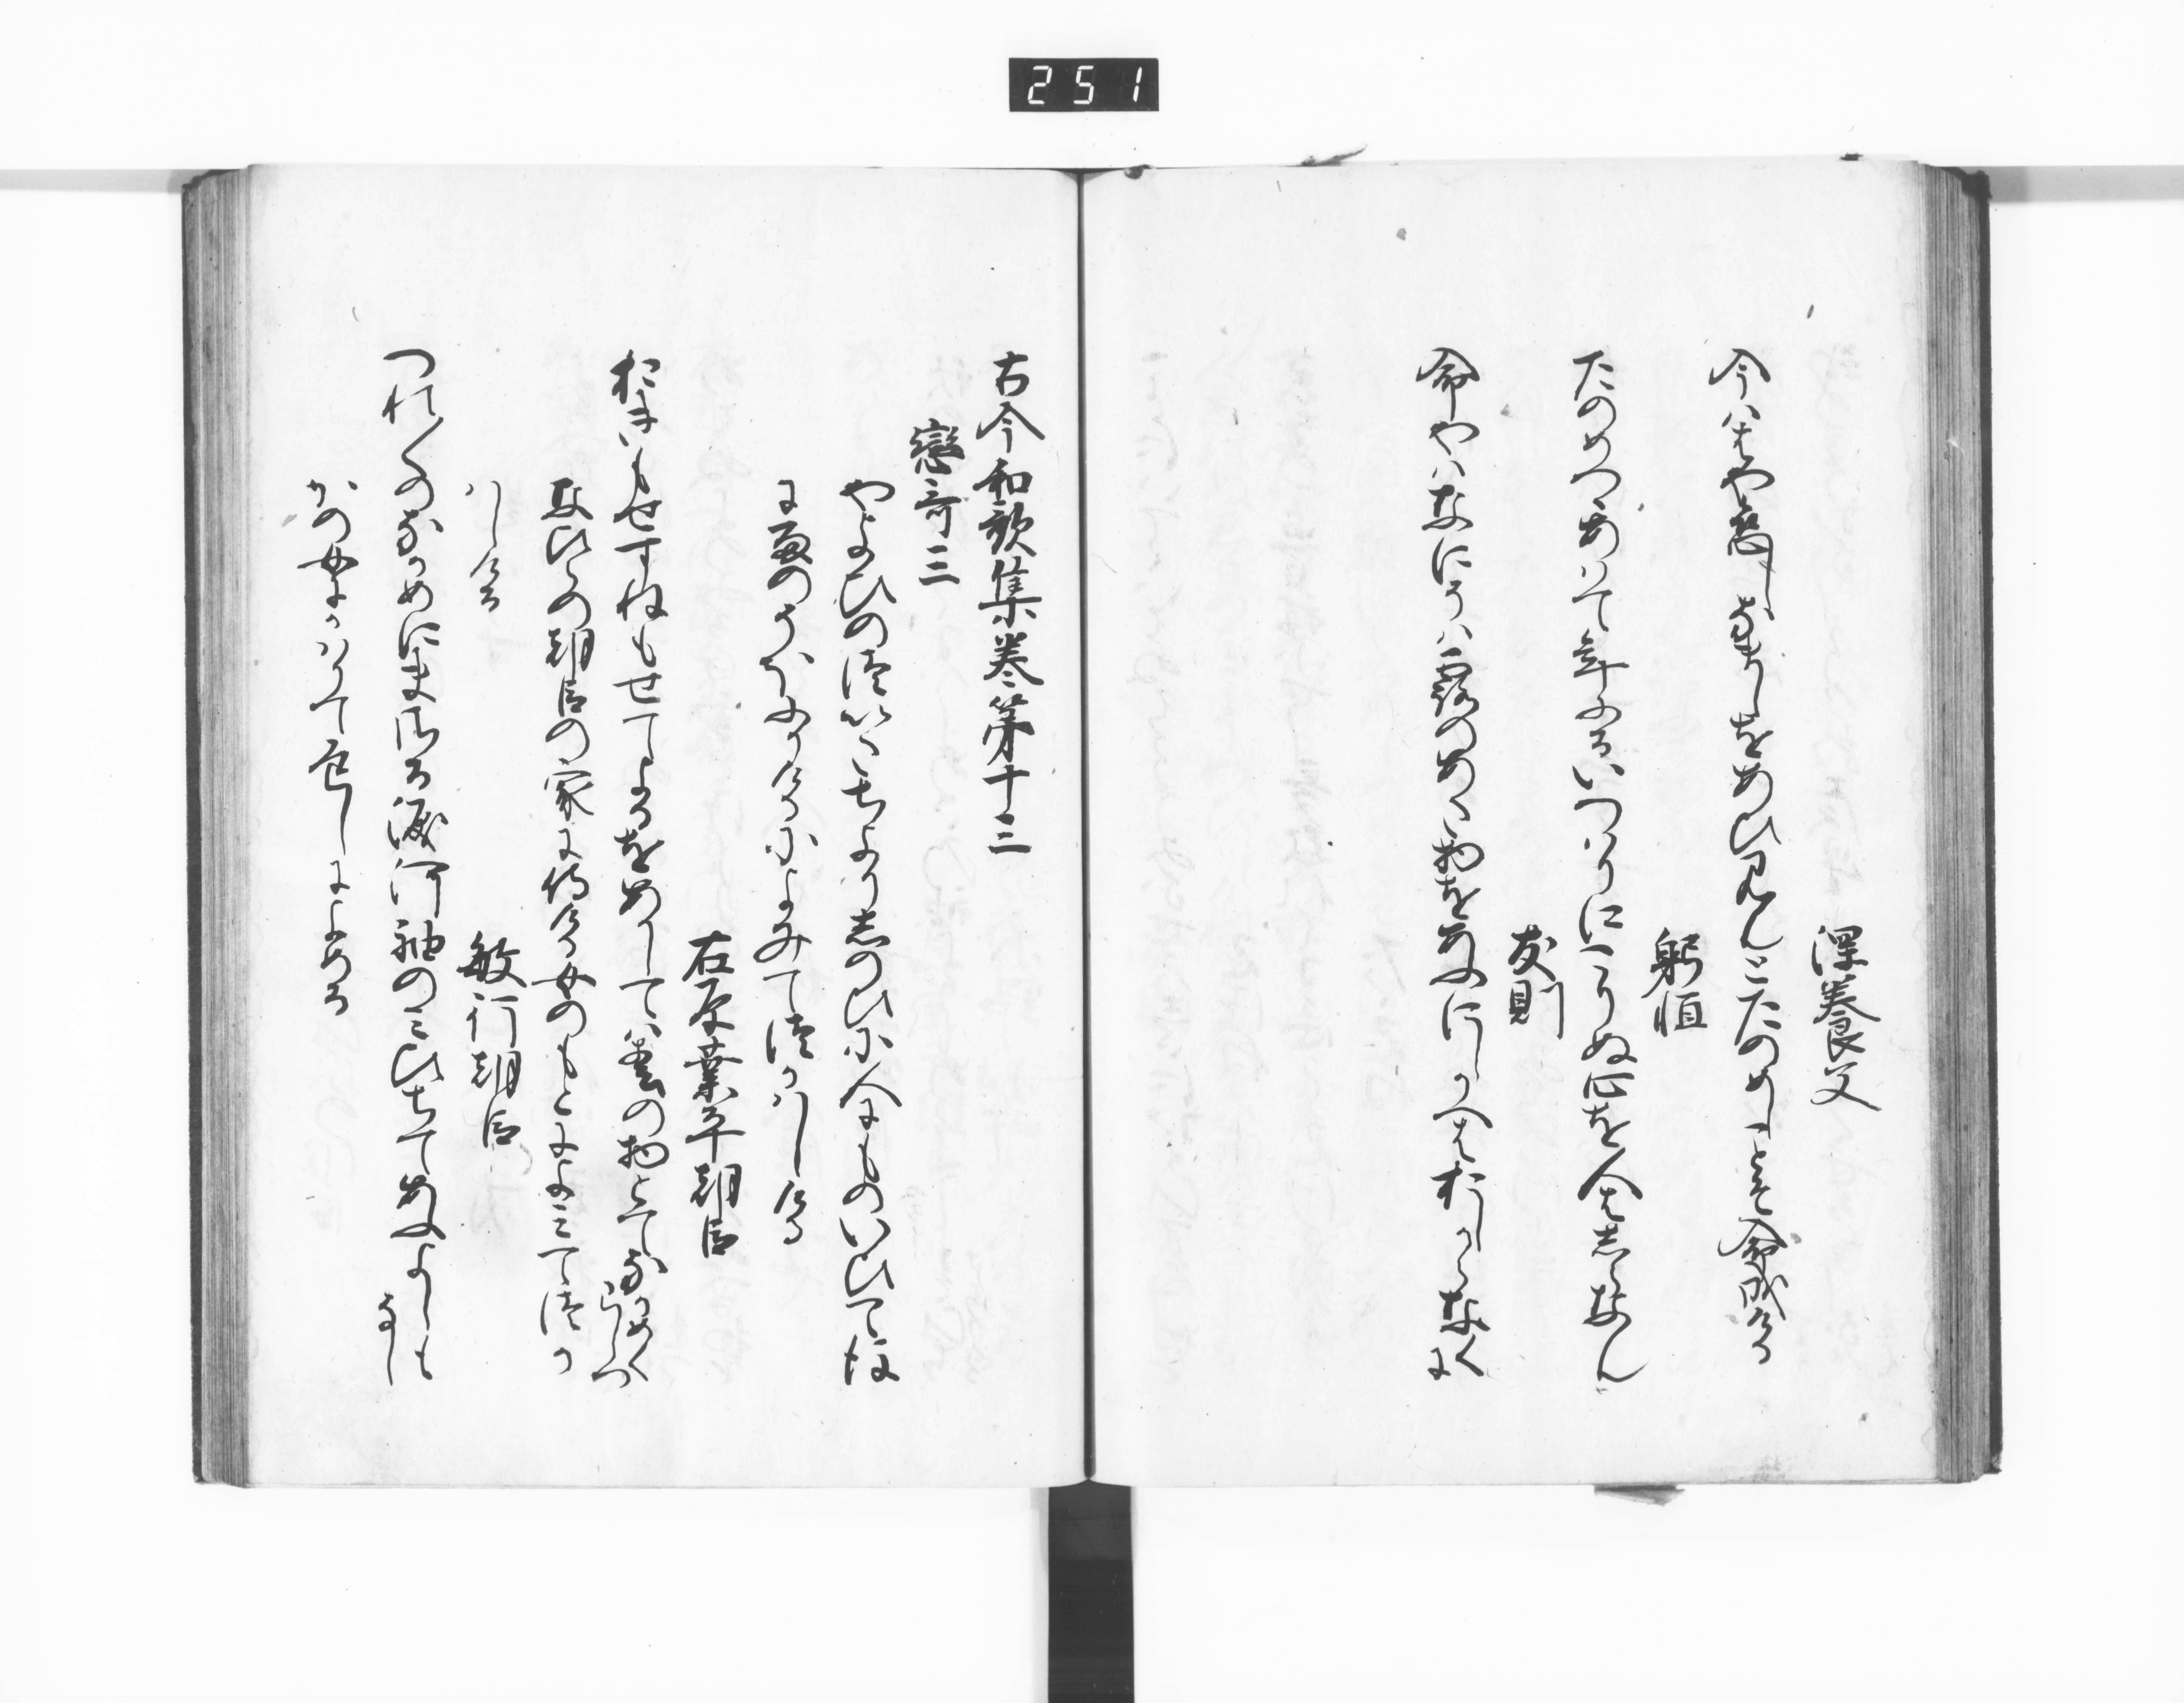 251
深養父
今ははや恋しなましをあひ見んとたのめしことそ命成ける
躬恒
たのめつゝあはて年ふるいつはりにこりぬ心を人はしらなん
友則
命やはなにそは露のあた物をあふにしかへはおしからなくに
古今和歌集巻第十三
戀哥三
やよひの徒いたちよりしのひに人にものいひて後
に雨のそほふりけるによみて徒かはしける
在原業平朝臣
おきもせすねもせてよるをあかしては春の物とてなかめくらしつ
なりひらの朝臣の家に侍ける女のもとによみて徒か
はしける
敏行朝臣
つれ〱のなかめにまさる涙河袖のみひちてあふよしもなし
かの女にかはりて返しによめる